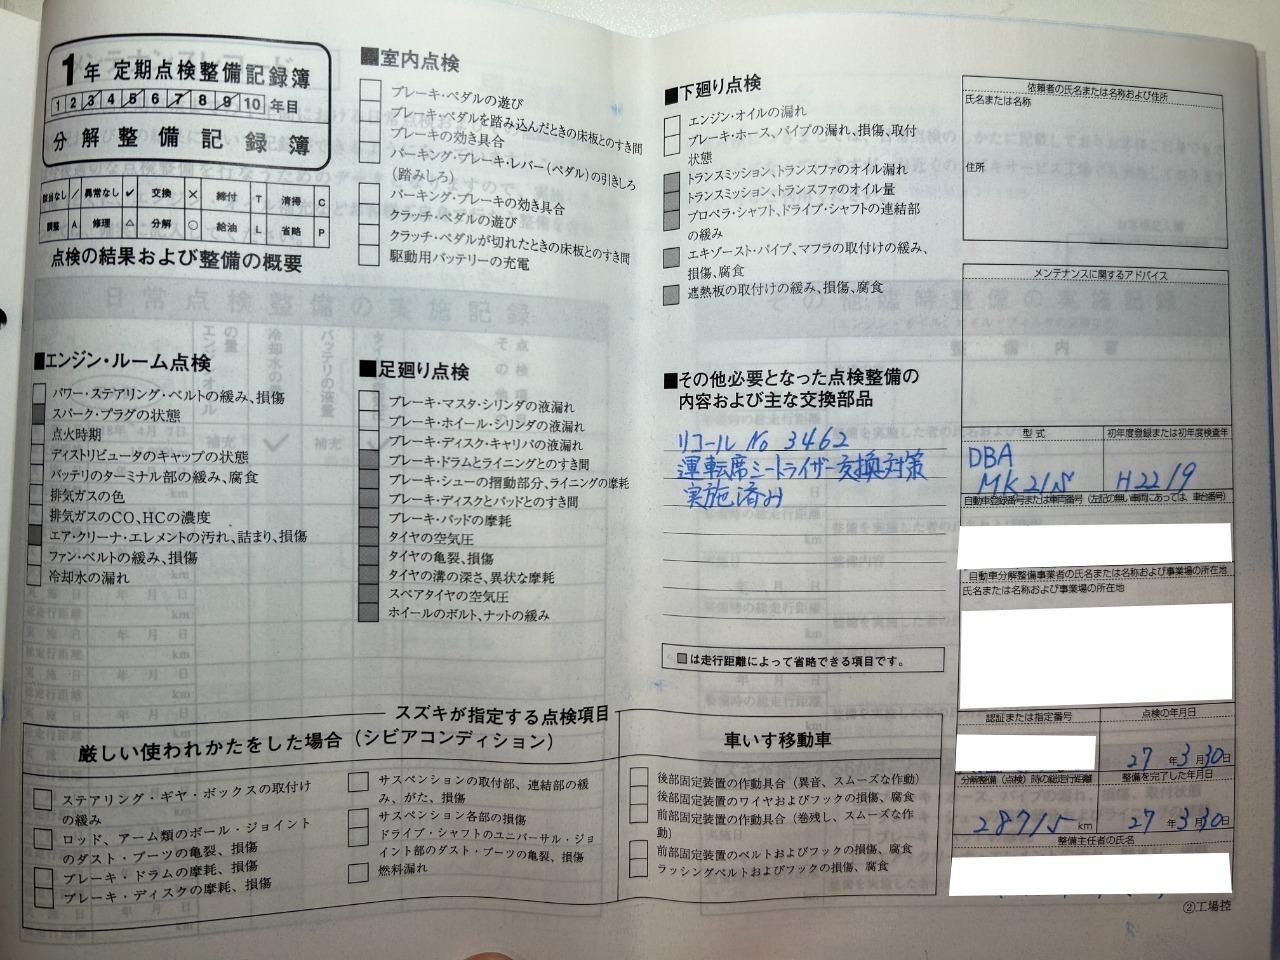 1年 定期点検整備記録簿
1 2 3 4 5 6 7 8 9 10 年目
分解整備記録簿
該当なし / 異常なし ✓ 交換 × 締付 T 清掃 C
調整 A 修理 △ 分解 ○ 給油 L 省略 P
点検の結果および整備の概要
■エンジン・ルーム点検
パワー・ステアリング・ベルトの緩み、損傷
スパーク・プラグの状態
点火時期
ディストリビュータのキャップの状態
バッテリのターミナル部の緩み、腐食
排気ガスの色
排気ガスのCO、HCの濃度
エア・クリーナ・エレメントの汚れ、詰まり、損傷
ファン・ベルトの緩み、損傷
冷却水の漏れ
■室内点検
ブレーキ・ペダルの遊び
ブレーキ・ペダルを踏み込んだときの床板とのすき間
ブレーキの効き具合
パーキング・ブレーキ・レバー(ペダル)の引きしろ
(踏みしろ)
パーキング・ブレーキの効き具合
クラッチ・ペダルの遊び
クラッチ・ペダルが切れたときの床板とのすき間
駆動用バッテリーの充電
■足廻り点検
ブレーキ・マスタ・シリンダの液漏れ
ブレーキ・ホイール・シリンダの液漏れ
ブレーキ・ディスク・キャリパの液漏れ
ブレーキ・ドラムとライニングとのすき間
ブレーキ・シューの摺動部分、ライニングの摩耗
ブレーキ・ディスクとパッドとのすき間
ブレーキ・パッドの摩耗
タイヤの空気圧
タイヤの亀裂、損傷
タイヤの溝の深さ、異状な摩耗
スペアタイヤの空気圧
ホイールのボルト、ナットの緩み
■下廻り点検
エンジン・オイルの漏れ
ブレーキ・ホース、パイプの漏れ、損傷、取付
状態
トランスミッション、トランスファのオイル漏れ
トランスミッション、トランスファのオイル量
プロペラ・シャフト、ドライブ・シャフトの連結部
の緩み
エキゾースト・パイプ、マフラの取付けの緩み、
損傷、腐食
遮熱板の取付けの緩み、損傷、腐食
■その他必要となった点検整備の
内容および主な交換部品
リコール No 3462
運転席シートライザー交換対策
実施済み
■は走行距離によって省略できる項目です。
依頼者の氏名または名称および住所
氏名または名称
住所
メンテナンスに関するアドバイス
型式
初年度登録または初年度検査年
DBA
MK21S
H22 19
自動車登録番号または車両番号(左記の無い車両にあっては、車台番号)
自動車分解整備事業者の氏名または名称および事業場の所在地
氏名または名称および事業場の所在地
認証または指定番号
点検の年月日
27 年 3 月 30 日
分解整備(点検)時の総走行距離
整備を完了した年月日
28715 km
27 年 3 月 30 日
整備主任者の氏名
②工場控
スズキが指定する点検項目
厳しい使われかたをした場合(シビアコンディション)
ステアリング・ギヤ・ボックスの取付け
の緩み
ロッド、アーム類のボール・ジョイント
のダスト・ブーツの亀裂、損傷
ブレーキ・ドラムの摩耗、損傷
ブレーキ・ディスクの摩耗、損傷
サスペンションの取付部、連結部の緩
み、がた、損傷
サスペンション各部の損傷
ドライブ・シャフトのユニバーサル・ジョ
イント部のダスト・ブーツの亀裂、損傷
燃料漏れ
車いす移動車
後部固定装置の作動具合(異音、スムーズな作動)
後部固定装置のワイヤおよびフックの損傷、腐食
前部固定装置の作動具合(巻残し、スムーズな作
動)
前部固定装置のベルトおよびフックの損傷、腐食
ラッシングベルトおよびフックの損傷、腐食